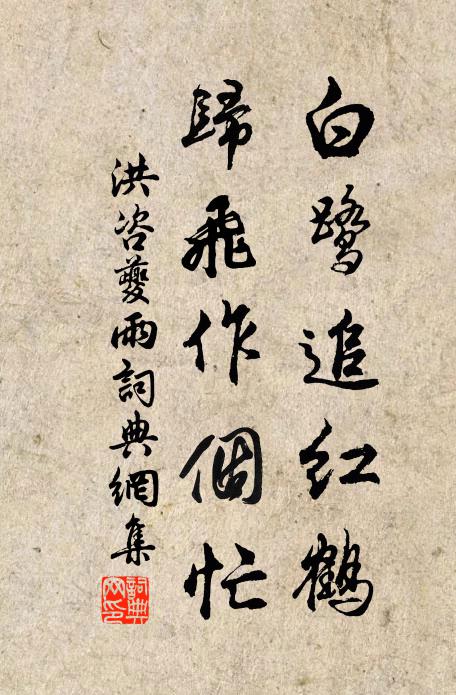 白鹭追红鹤
歸飛作個忙
洪咨夔雨詞典網集
詞典網印